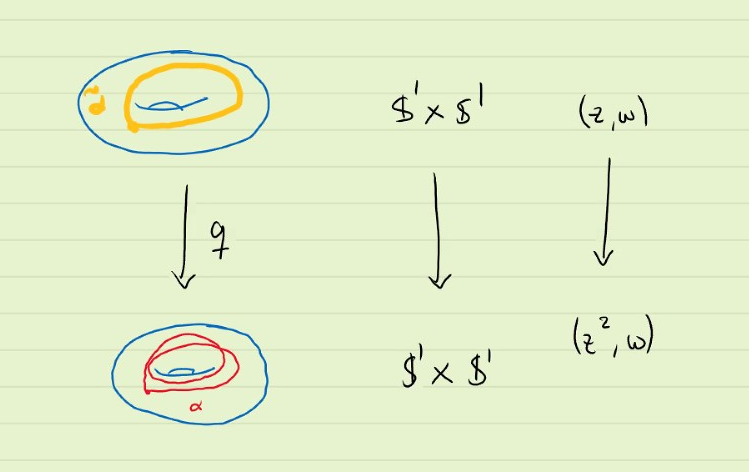 α̃ 𝕊¹ × 𝕊¹ (z, w)
q
𝕊¹ × 𝕊¹ (z², w)
α